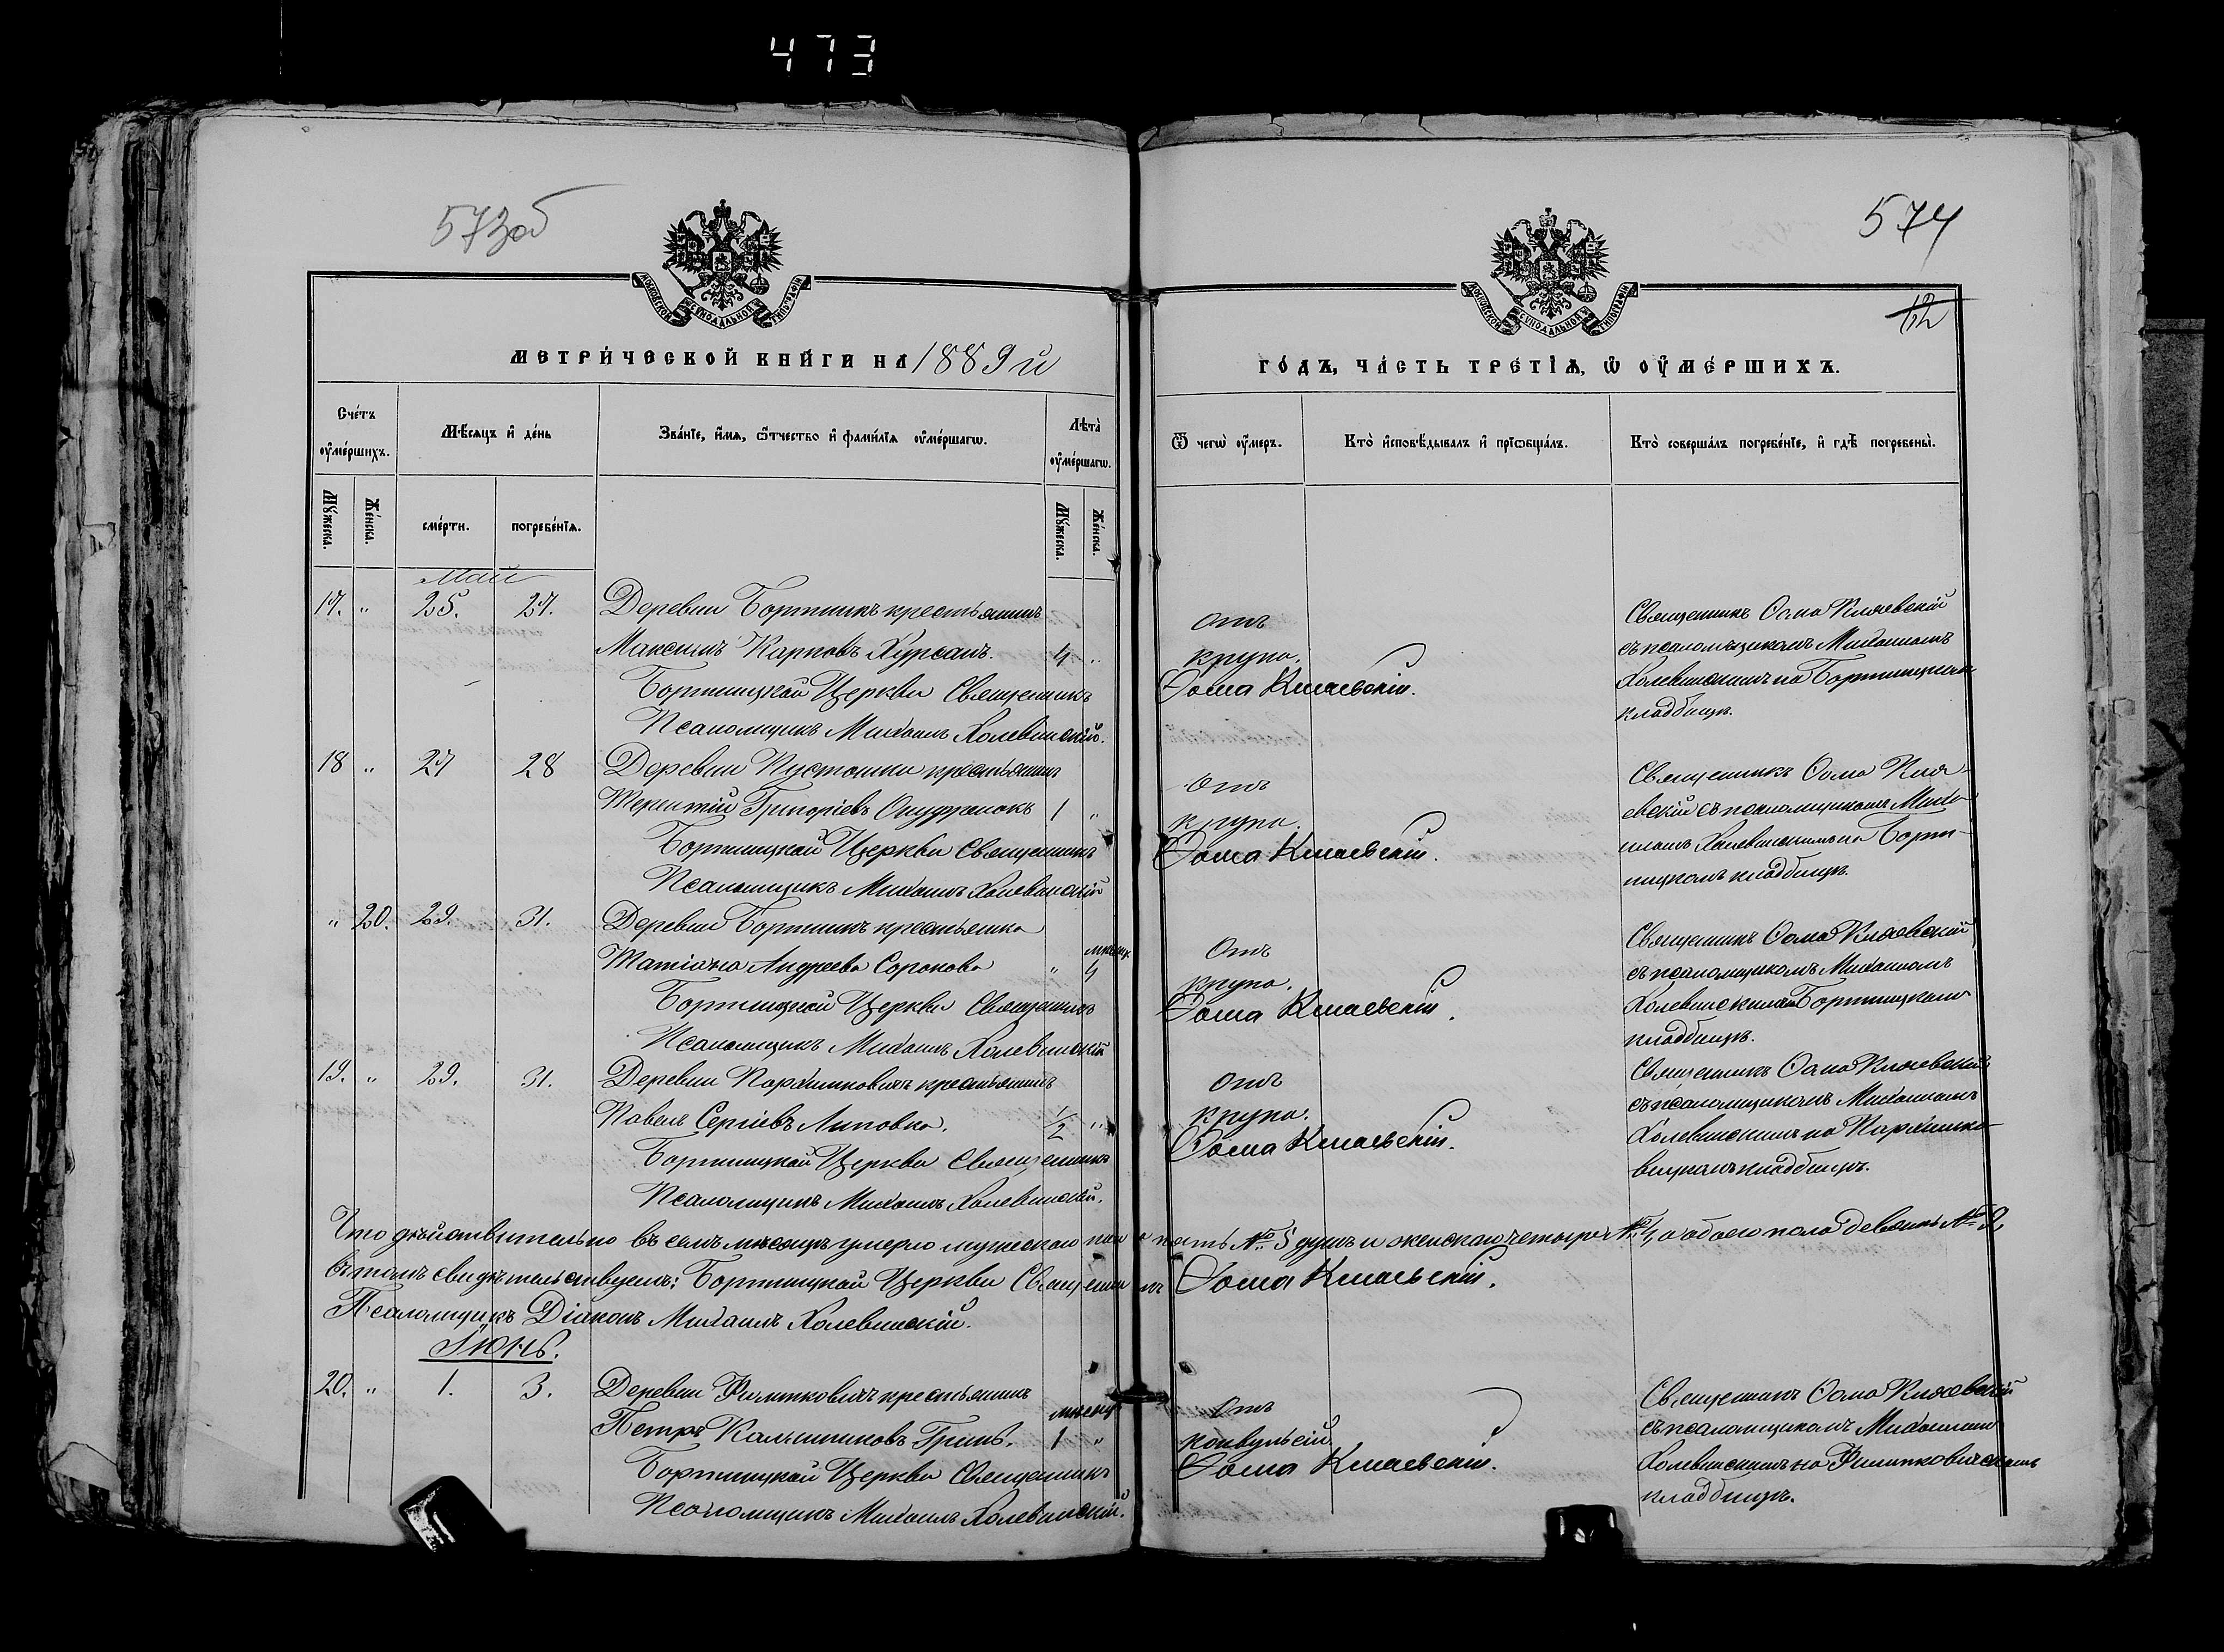 473
573об
574
12
МОСКОВСКОЙ СѴНОДАЛЬНОЙ ТИПОГРАФІИ
МОСКОВСКОЙ СѴНОДАЛЬНОЙ ТИПОГРАФІИ
МЕТРИ́ЧЕСКОЙ КНИ́ГИ НА 1889й
ГО́ДЪ, ЧА́СТЬ ТРЕ́ТІѦ, Ѡ҆ ОУ҆МЕ́РШИХЪ.
Сче́тъ оу҆ме́ршихъ.
Мѣ́сѧцъ и҆ де́нь
Зва́нїе, и҆́мѧ, ѻ҆́тчество и҆ фами́лїѧ оу҆ме́ршагѡ.
Лѣ́та оу҆ме́ршагѡ.
Ѿ чегѡ̀ оу҆́меръ.
Кто̀ и҆сповѣ́дывалъ и҆ прїѡбща́лъ.
Кто̀ соверша́лъ погребе́нїе, и҆ гдѣ̀ погребены̀.
Мꙋ́жеска.
Же́нска.
сме́рти.
погребе́нїѧ.
Мꙋ́жеска.
Же́нска.
Май
17. " 25. 27. Деревни Бортникъ крестьянинъ
Максимъ Карповъ Хурсанъ. 4 "
Бортницкой Церкви Священникъ
Псаломщикъ Михаилъ Холевинскій.
отъ
крупа.
Ѳома Кглаевскій.
Священникъ Ѳома Кглаевскій
съ псаломщикомъ Михаиломъ
Холевинскимъ на Бортницкомъ
кладбищѣ.
18 " 27 28 Деревни Пустошки крестьянинъ
Терентій Григоріевъ Онуфріюкъ 1 "
Бортницкой Церкви Священникъ
Псаломщикъ Михаилъ Холевинскій
отъ
крупа.
Ѳома Кглаевскій.
Священникъ Ѳома Кгла-
евскій съ псаломщикомъ Миха-
иломъ Холевинскимъ на Борт-
ницкомъ кладбищѣ.
" 20. 29. 31. Деревни Бортникъ крестьянка
мѣсяц
Татіана Андреева Сорокова " 4
Бортницкой Церкви Священникъ
Псаломщикъ Михаилъ Холевинскій
Отъ
крупа.
Ѳома Кглаевскій.
Священникъ Ѳома Кглаевскій
съ псаломщикомъ Михаиломъ
Холевинскимъ на Бортницкомъ
кладбищѣ.
19. " 29. 31. Деревни Пархимковичъ крестьянинъ
Павелъ Сергіевъ Липовка. 1/2 "
Бортницкой Церкви Священникъ
Псаломщикъ Михаилъ Холевинскій.
Отъ
крупа.
Ѳома Кглаевскій.
Священникъ Ѳома Кглаевскій
съ псаломщикомъ Михаиломъ
Холевинскимъ на Пархимко-
вицкомъ кладбищѣ.
Что дѣйствительно въ семъ мѣсяцѣ умерло мужескаго пола пять № 5 душъ и женскаго четыре № 4, а обоего пола девять № 9,
въ томъ свидѣтельствуемъ: Бортницкой Церкви Священникъ Ѳома Кглаевскій.
Псаломщикъ Діаконъ Михаилъ Холевинскій.
Іюнь.
20. " 1. 3. Деревни Филипковичъ крестьянинъ
мѣсяц
Петръ Калинниковъ Гринь. 1 "
Бортницкой Церкви Священникъ
Псаломщикъ Михаилъ Холевинскій.
Отъ
конвульсій.
Ѳома Кглаевскій.
Священникъ Ѳома Кглаевскій
съ псаломщикомъ Михаиломъ
Холевинскимъ на Филипковичскомъ
кладбищѣ.